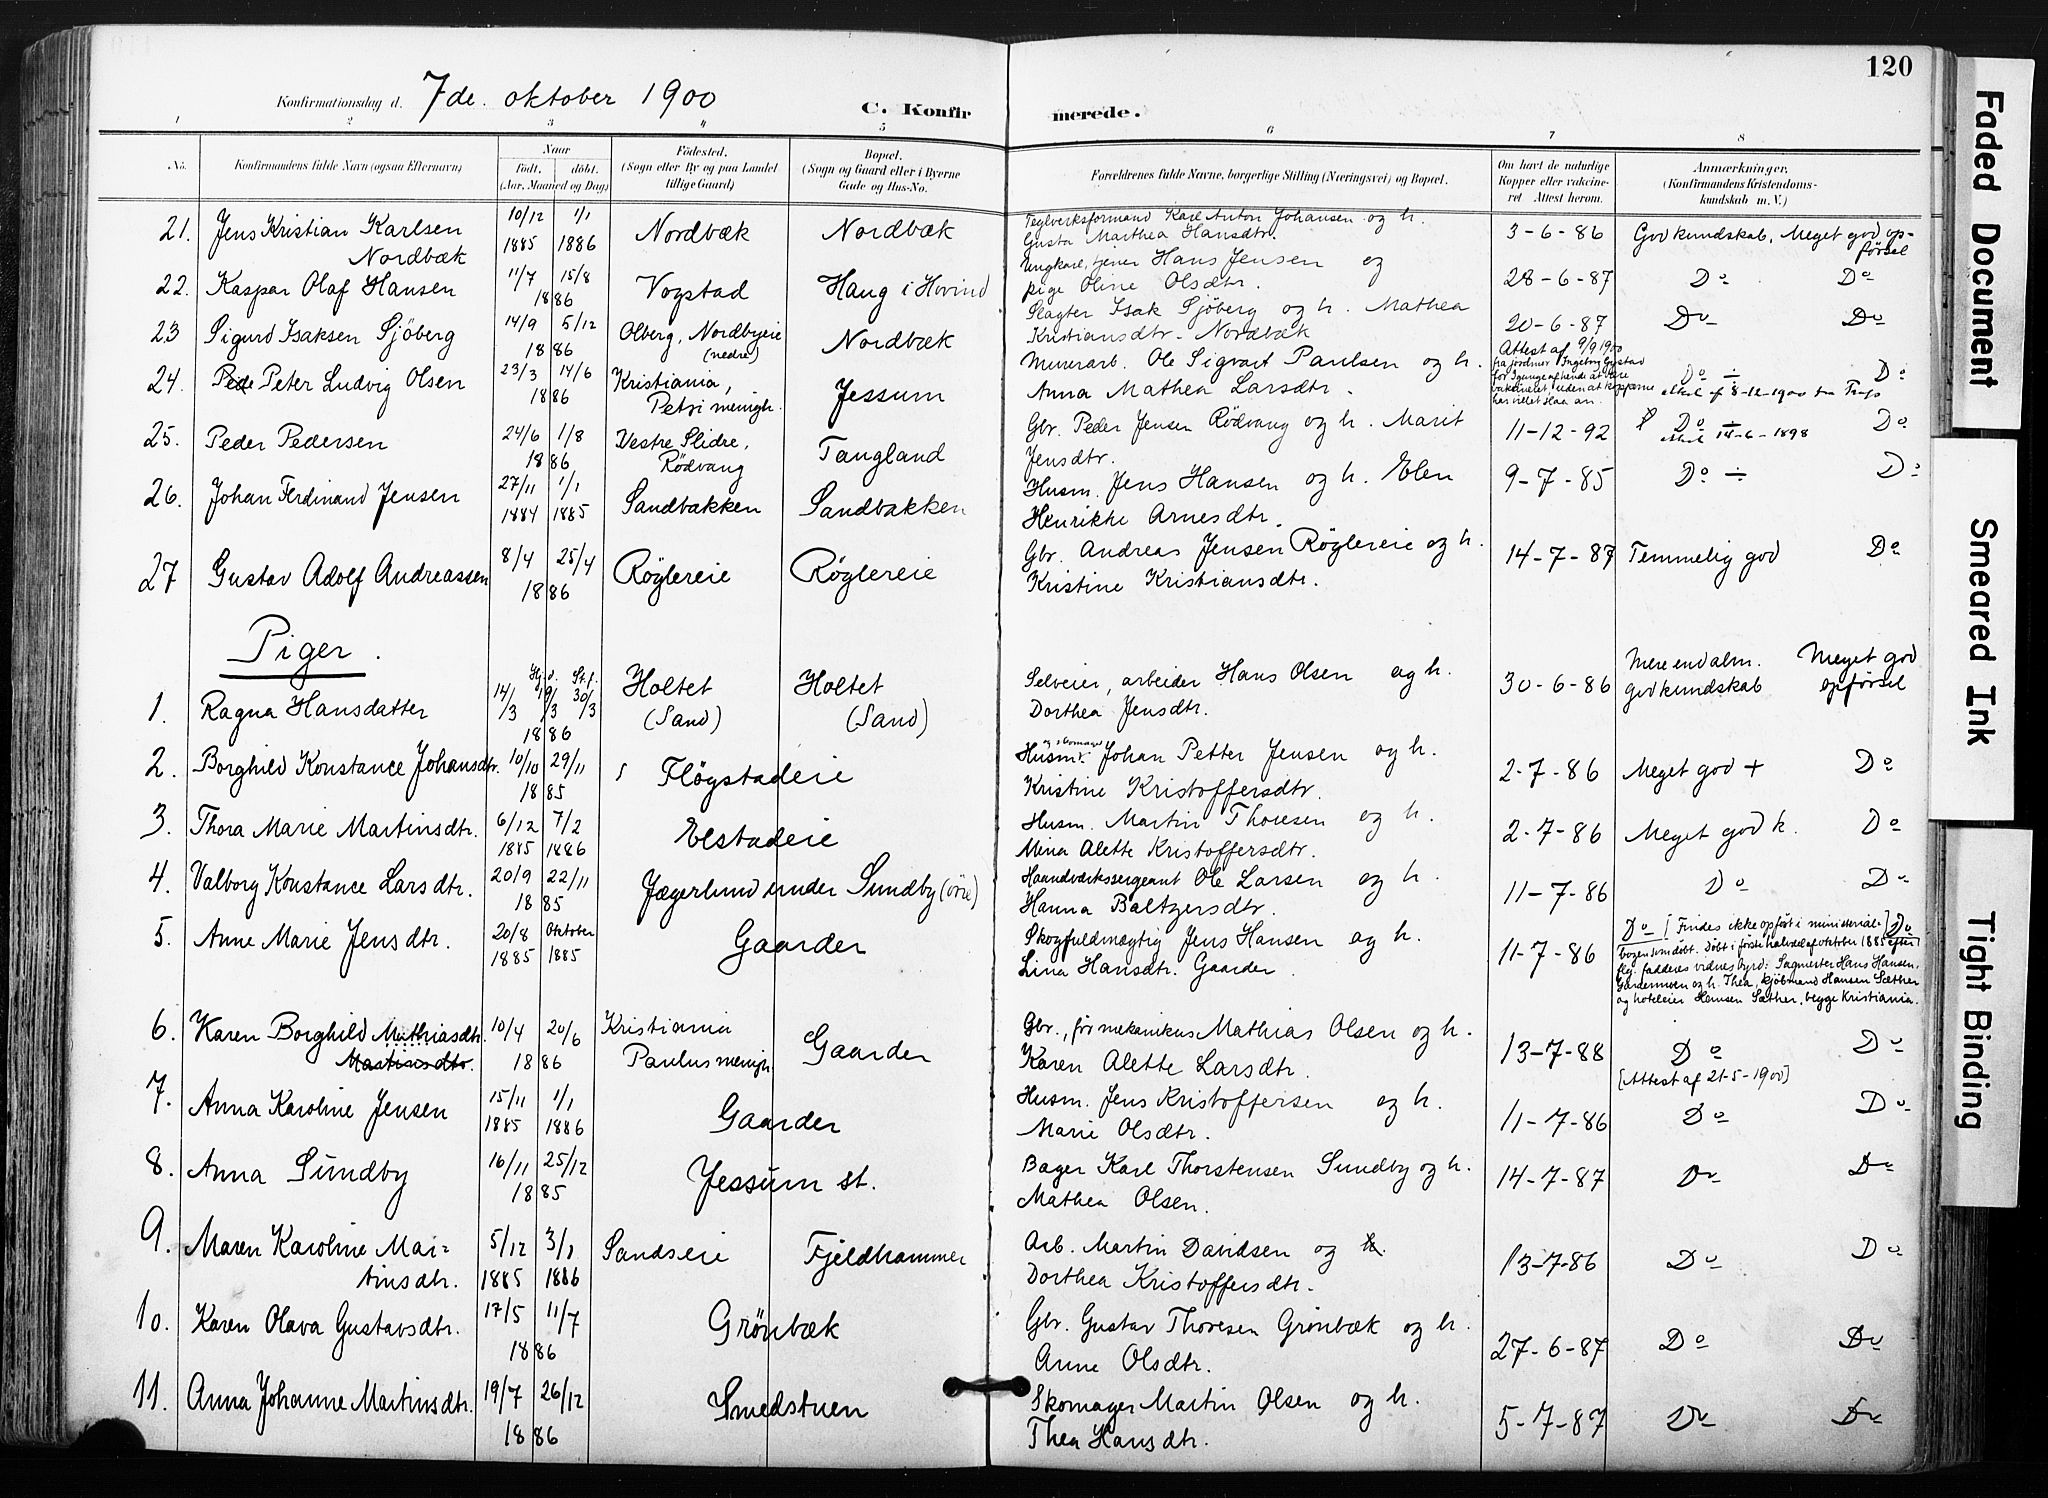 120
Konfirmationsdag d. 7de. oktober 1900 C. Konfirmerede.
1 2 3 4 5 6 7 8
No. Konfirmandens fulde Navn (ogsaa Efternavn) Naar Födt. döbt. (Aar, Maaned og Dag) Födested. (Sogn eller By og paa Landet tillige Gaard) Bopæl. (Sogn og Gaard eller i Byerne Gade og Hus-No. Forældrenes fulde Navne, borgerlige Stilling (Næringsvei) og Bopæl. Om havt de naturlige Kopper eller vakcineret. Attest herom. Anmærkninger. (Konfirmandens Kristendomskundskab m. V.)
21. Jens Kristian Karlsen Nordbæk 10/12 1885 1/1 1886 Nordbæk Nordbæk Teglverksformand Karl Anton Johansen og h. Gusta Marthea Hansdtr. 3-6-86 God kundskab. Meget god opførsel
22. Kaspar Olaf Hansen 11/7 15/8 1886 Vogstad Haug i Hovind Ungkarl, tjener Hans Jensen og pige Oline Olsdtr. 28-6-87 Do Do
23 Sigurd Isaksen Sjöberg 14/9 5/12 1886 Olberg, Nordbyeie (nedre) Nordbæk Slagter Isak Sjöberg og h. Mathea Kristiansdtr. Nordbæk 20-6-87 Do Do
24. Peter Ludvig Olsen 23/3 14/6 1886 Kristiania, Petri menigh. Jessum Murerarb. Ole Sigvart Paulsen og h. Anna Mathea Larsdtr. Attest af 9/9 1900 Do ÷ Do
25. Peder Pedersen 24/6 1/8 1886 Vestre Slidre, Rödvang Tangland Gbr. Peder Jensen Rödvang og h. Marit Jensdtr. 11-12-92 Do ÷ 14-6-1898 Do
26. Johan Ferdinand Jensen 27/11 1884 1/1 1885 Sandbakken Sandbakken Husm. Jens Hansen og h. Elen Henrikke Arnesdtr. 9-7-85 Do ÷ Do
27 Gustav Adolf Andreassen 8/4 25/4 1886 Röglereie Röglereie Gbr. Andreas Jensen Røglereie og h. Kristine Kristiansdtr. 14-7-87 Temmelig god Do
Piger.
1. Ragna Hansdatter 14/1 30/3 1886 Holtet (Sand) Holtet (Sand) Selveier, arbeider Hans Olsen og h. Dorthea Jensdtr. 30-6-86 Mere end alm. god kundskab Meget god opførsel
2. Borghild Konstance Johansdtr. 10/10 29/11 1885 Flögstadeie Husm. Johan Petter Jensen og h. Kristine Kristoffersdtr. 2-7-86 Meget god + Do
3. Thora Marie Martinsdtr. 6/12 1885 7/2 1886 Elstadeie Husm. Martin Thoresen og h. Mina Alette Kristoffersdtr. 2-7-86 Meget god k. Do
4. Valborg Konstance Larsdtr. 20/9 22/11 1885 Jægerlund under Sundby (övre) Haandverkssergeant Ole Larsen og h. Hanna Baltzersdtr. 11-7-86 Do Do
5. Anne Marie Jensdtr. 20/8 1885 Oktober 1885 Gaarder Skogfuldmægtig Jens Hansen og h. Lina Hansdtr. Gaarder. 11-7-86 Do [Findes ikke opfört i ministerialbogen som döbt. Döbt i förste halvdel af oktober 1885 efter flg. fadderes vidnesbyrd: Sagmester Hans Hansen, Gardermoen og h. Thea, kjöbmand Hansen Sæther og hoteleier Hansen Sæther, begge Kristiania.] Do
6. Karen Borghild Mathiasdtr. Martinsdtr. 10/4 20/6 1886 Kristiania Paulus menigh Gaarder Gbr., før mekanikus Mathias Olsen og h. Karen Alette Larsdtr. 13-7-88 Do [Attest af 21-5-1900] Do
7. Anna Karoline Jensen 15/11 1885 1/1 1886 Gaarder Husm. Jens Kristoffersen og h. Marie Olsdtr. 11-7-86 Do Do
8. Anna Sundby 16/11 25/12 1885 Jessum st. Bager Karl Thorstensen Sundby og h. Mathea Olsen. 14-7-87 Do Do
9. Maren Karoline Martinsdtr. 5/12 1885 3/1 1886 Sandseie Fjeldhammer Arb. Martin Davidsen og h. Dorthea Kristoffersdtr. 13-7-86 Do Do
10. Karen Olava Gustavsdtr. 17/5 11/7 1886 Grönbæk Gbr. Gustav Thoresen Grönbæk og h. Anne Olsdtr. 27-6-87 Do Do
11. Anna Johanne Martinsdtr. 19/7 26/12 1886 Smedstuen Skomager Martin Olsen og h. Thea Hansdtr. 5-7-87 Do Do
Faded Document
Smeared Ink
Tight Binding